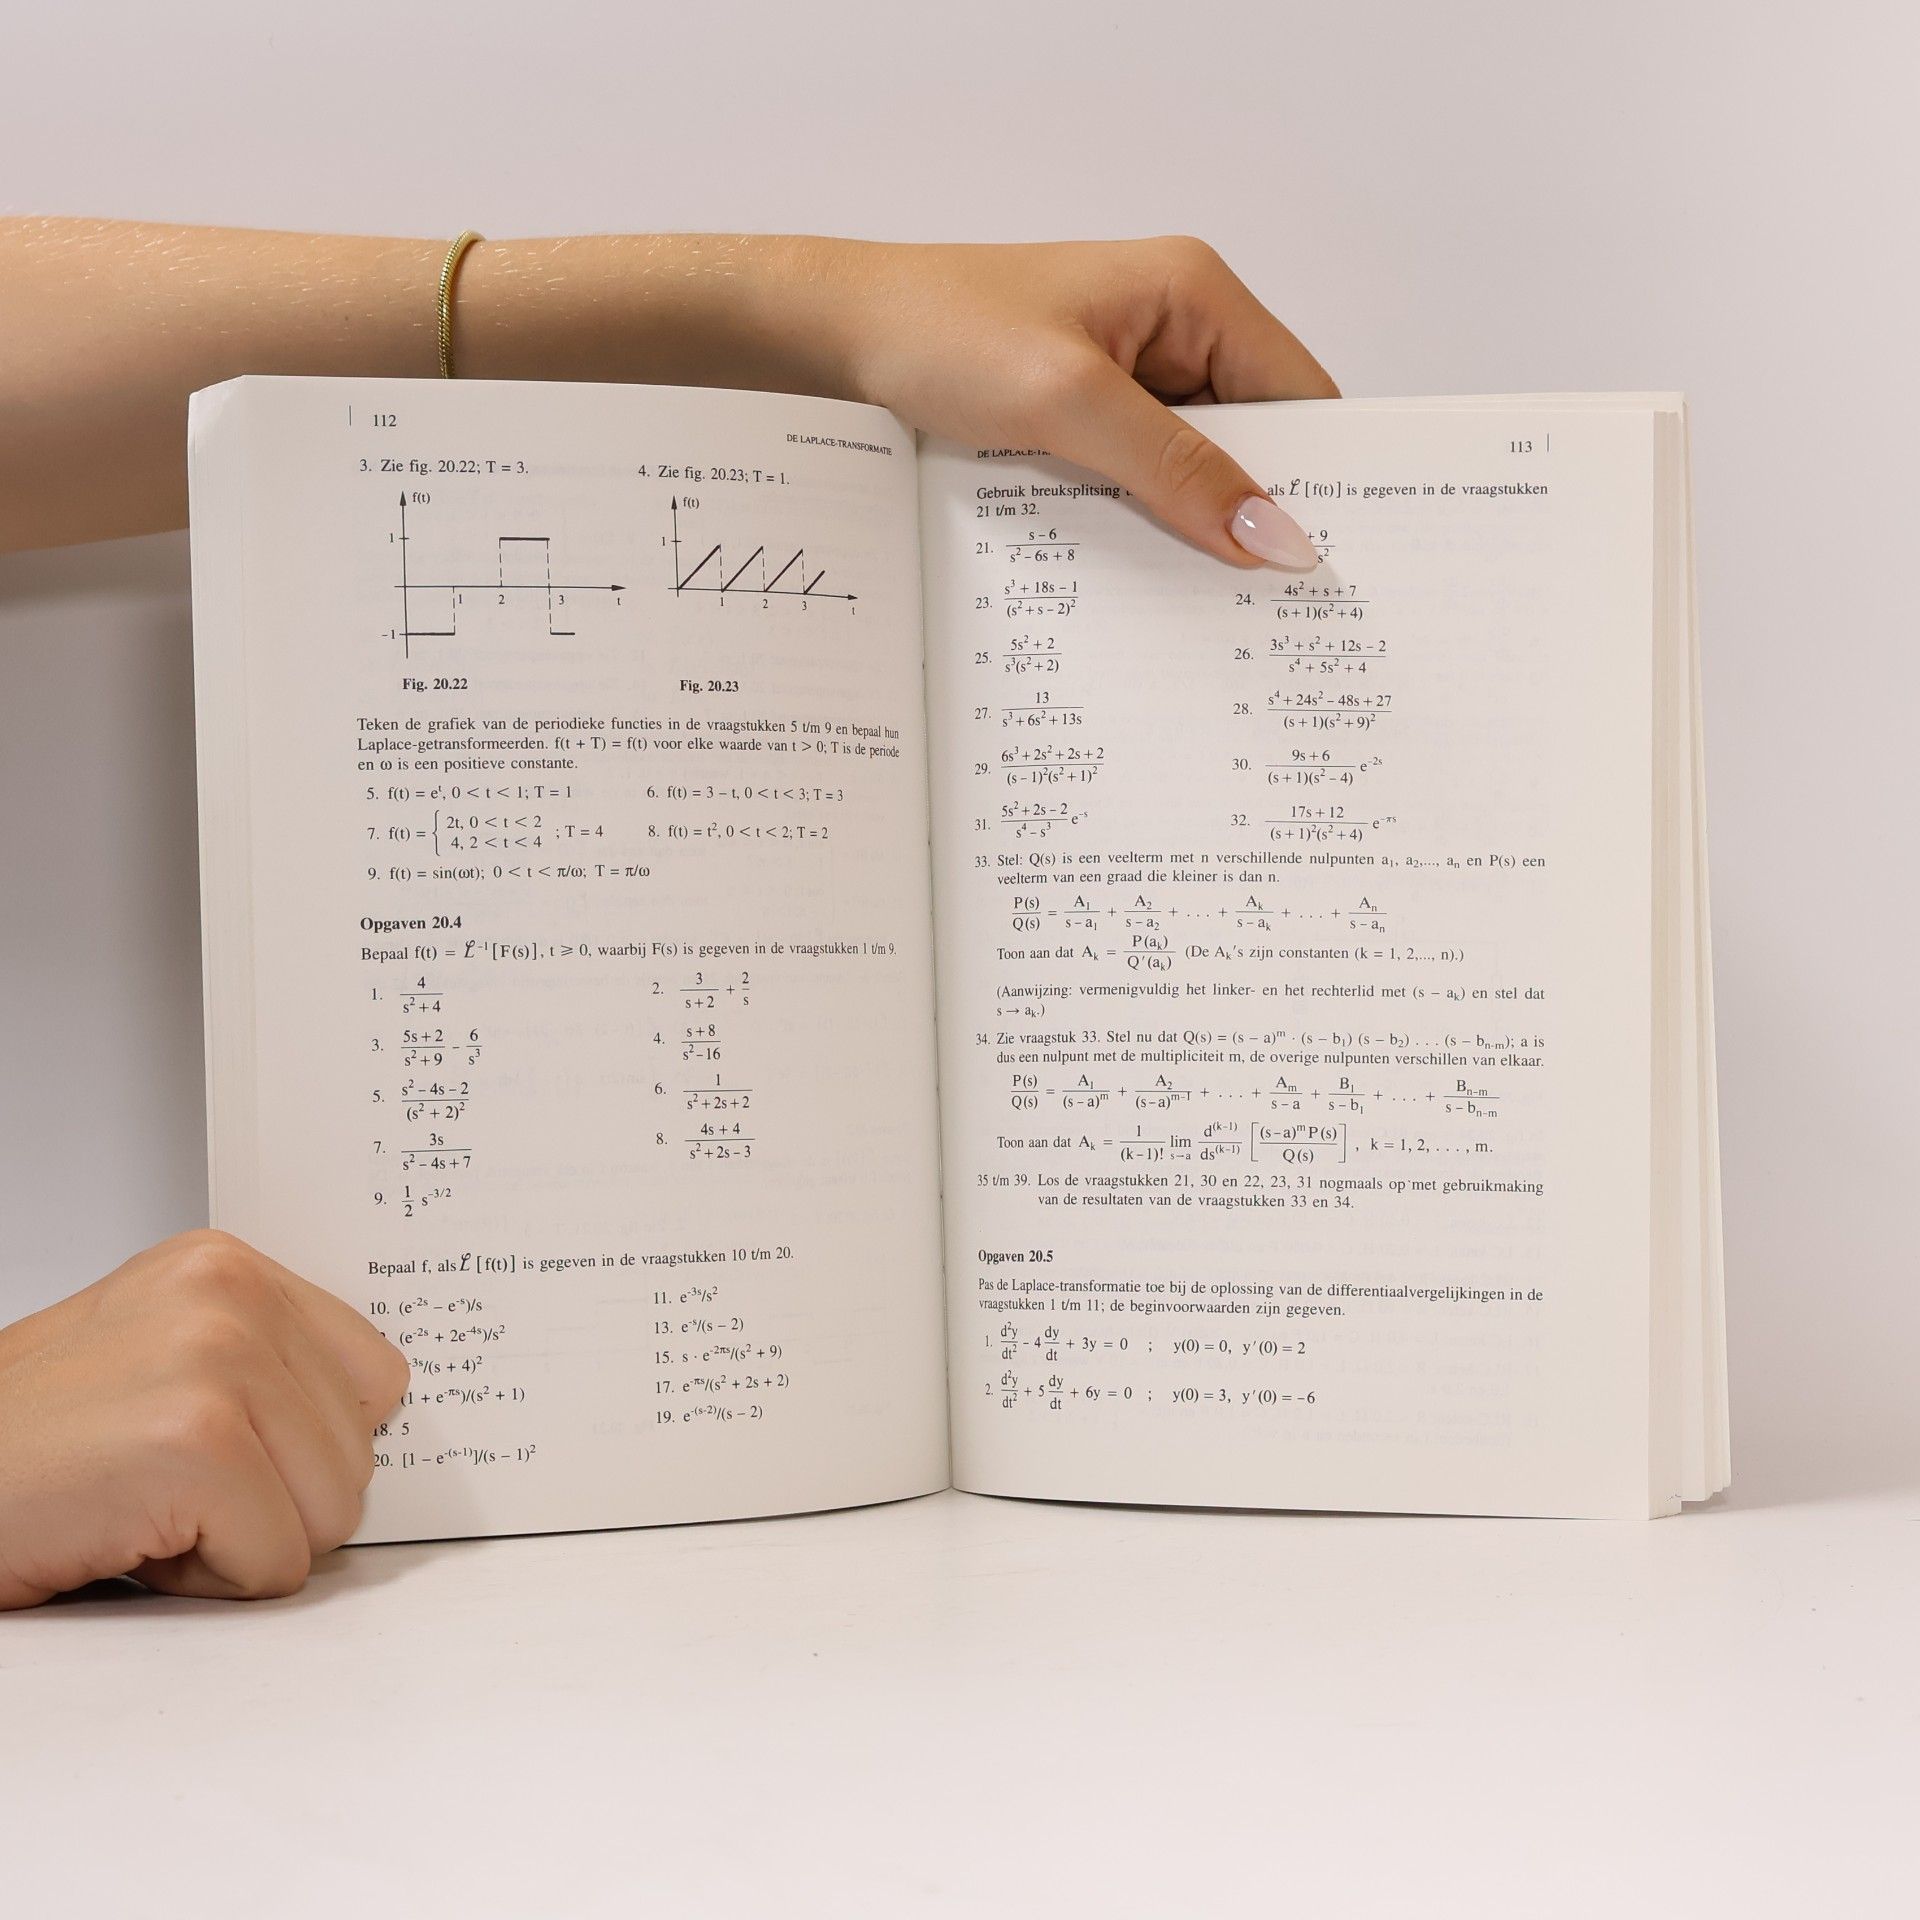 112
DE LAPLACE-TRANSFORMATIE
3. Zie fig. 20.22; T = 3.
4. Zie fig. 20.23; T = 1.
f(t)
1
-1
1 2 3 t
f(t)
1
1 2 3 t
Fig. 20.22
Fig. 20.23
Teken de grafiek van de periodieke functies in de vraagstukken 5 t/m 9 en bepaal hun
Laplace-getransformeerden. f(t + T) = f(t) voor elke waarde van t > 0; T is de periode
en ω is een positieve constante.
5. f(t) = e^t, 0 < t < 1; T = 1
6. f(t) = 3 – t, 0 < t < 3; T = 3
7. f(t) = { 2t, 0 < t < 2
4, 2 < t < 4 ; T = 4
8. f(t) = t², 0 < t < 2; T = 2
9. f(t) = sin(ωt); 0 < t < π/ω; T = π/ω
Opgaven 20.4
Bepaal f(t) = ℒ⁻¹ [F(s)], t ⩾ 0, waarbij F(s) is gegeven in de vraagstukken 1 t/m 9.
1. 4/(s² + 4)
2. 3/(s + 2) + 2/s
3. (5s + 2)/(s² + 9) – 6/s³
4. (s + 8)/(s² – 16)
5. (s² – 4s – 2)/(s² + 2)²
6. 1/(s² + 2s + 2)
7. 3s/(s² – 4s + 7)
8. (4s + 4)/(s² + 2s – 3)
9. 1/2 s^-3/2
Bepaal f, als ℒ [f(t)] is gegeven in de vraagstukken 10 t/m 20.
10. (e^-2s – e^-s)/s
11. e^-3s/s²
(e^-2s + 2e^-4s)/s²
13. e^-s/(s – 2)
-3s/(s + 4)²
15. s · e^-2πs/(s² + 9)
(1 + e^-πs)/(s² + 1)
17. e^-πs/(s² + 2s + 2)
18. 5
19. e^-(s-2)/(s – 2)
20. [1 – e^-(s-1)]/(s – 1)²
113
Gebruik breuksplitsing als ℒ [f(t)] is gegeven in de vraagstukken
21 t/m 32.
21. (s – 6)/(s² – 6s + 8)
+ 9
s²
23. (s³ + 18s – 1)/(s² + s – 2)²
24. (4s² + s + 7)/((s + 1)(s² + 4))
25. (5s² + 2)/(s³(s² + 2))
26. (3s³ + s² + 12s – 2)/(s⁴ + 5s² + 4)
27. 13/(s³ + 6s² + 13s)
28. (s⁴ + 24s² – 48s + 27)/((s + 1)(s² + 9)²)
29. (6s³ + 2s² + 2s + 2)/((s – 1)²(s² + 1)²)
30. (9s + 6)/((s + 1)(s² – 4)) e^-2s
31. (5s² + 2s – 2)/(s⁴ – s³) e^-s
32. (17s + 12)/((s + 1)²(s² + 4)) e^-πs
33. Stel: Q(s) is een veelterm met n verschillende nulpunten a₁, a₂,..., aₙ en P(s) een
veelterm van een graad die kleiner is dan n.
P(s)/Q(s) = A₁/(s – a₁) + A₂/(s – a₂) + . . . + Aₖ/(s – aₖ) + . . . + Aₙ/(s – aₙ)
Toon aan dat Aₖ = P(aₖ)/Q'(aₖ) (De Aₖ's zijn constanten (k = 1, 2,..., n).)
(Aanwijzing: vermenigvuldig het linker- en het rechterlid met (s – aₖ) en stel dat
s → aₖ.)
34. Zie vraagstuk 33. Stel nu dat Q(s) = (s – a)^m · (s – b₁) (s – b₂) . . . (s – b_n-m); a is
dus een nulpunt met de multipliciteit m, de overige nulpunten verschillen van elkaar.
P(s)/Q(s) = A₁/(s – a)^m + A₂/(s – a)^m-1 + . . . + A_m/(s – a) + B₁/(s – b₁) + . . . + B_n-m/(s – b_n-m)
Toon aan dat Aₖ = 1/(k – 1)! lim s→a d^(k-1)/ds^(k-1) [(s – a)^m P(s)/Q(s)] , k = 1, 2, . . . , m.
35 t/m 39. Los de vraagstukken 21, 30 en 22, 23, 31 nogmaals op met gebruikmaking
van de resultaten van de vraagstukken 33 en 34.
Opgaven 20.5
Pas de Laplace-transformatie toe bij de oplossing van de differentiaalvergelijkingen in de
vraagstukken 1 t/m 11; de beginvoorwaarden zijn gegeven.
1. d²y/dt² – 4 dy/dt + 3y = 0 ; y(0) = 0, y'(0) = 2
2. d²y/dt² + 5 dy/dt + 6y = 0 ; y(0) = 3, y'(0) = –6